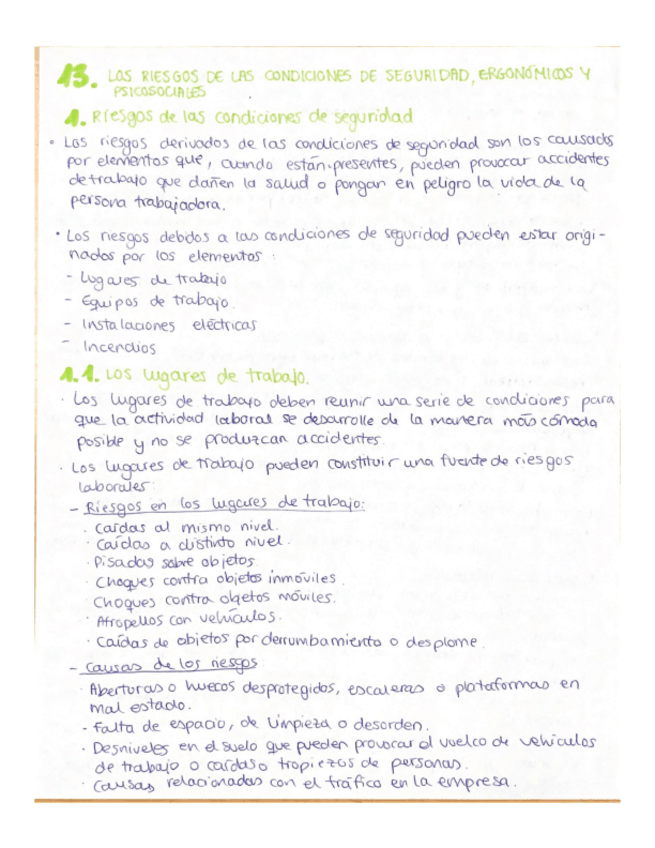 13. LOS RIESGOS DE LAS CONDICIONES DE SEGURIDAD, ERGONÓMICOS Y
PSICOSOCIALES
1. Riesgos de las condiciones de seguridad
• Los riesgos derivados de las condiciones de seguridad son los causados
por elementos que, cuando están presentes, pueden provocar accidentes
de trabajo que dañen la salud o pongan en peligro la vida de la
persona trabajadora.
• Los riesgos debidos a las condiciones de seguridad pueden estar origi-
nados por los elementos :
- Lugares de trabajo
- Equipos de trabajo.
- Instalaciones eléctricas
- Incendios
1.1. Los lugares de trabajo.
· Los lugares de trabajo deben reunir una serie de condiciones para
que la actividad laboral se desarrolle de la manera más cómoda
posible y no se produzcan accidentes.
· Los lugares de trabajo pueden constituir una fuente de riesgos
laborales:
- Riesgos en los lugares de trabajo:
· Caídas al mismo nivel.
· Caídas a distinto nivel.
· Pisadas sobre objetos
· Choques contra objetos inmóviles.
Choques contra objetos móviles.
· Atropellos con vehículos.
· Caídas de objetos por derrumbamiento o desplome.
- Causas de los riesgos
· Aberturas o huecos desprotegidos, escaleras o plataformas en
mal estado.
· Falta de espacio, de limpieza o desorden.
· Desniveles en el suelo que pueden provocar el vuelco de vehículos
de trabajo o caídas o tropiezos de personas.
· Causas relacionadas con el tráfico en la empresa.